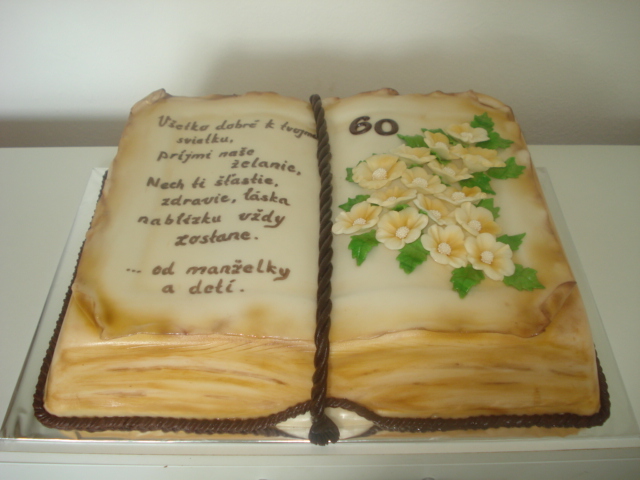 Všetko dobré k tvojmu
sviatku,
prijmi naše
želanie,
Nech ti šťastie,
zdravie, láska
nablízku vždy
zostane.
... od manželky
a detí.
60